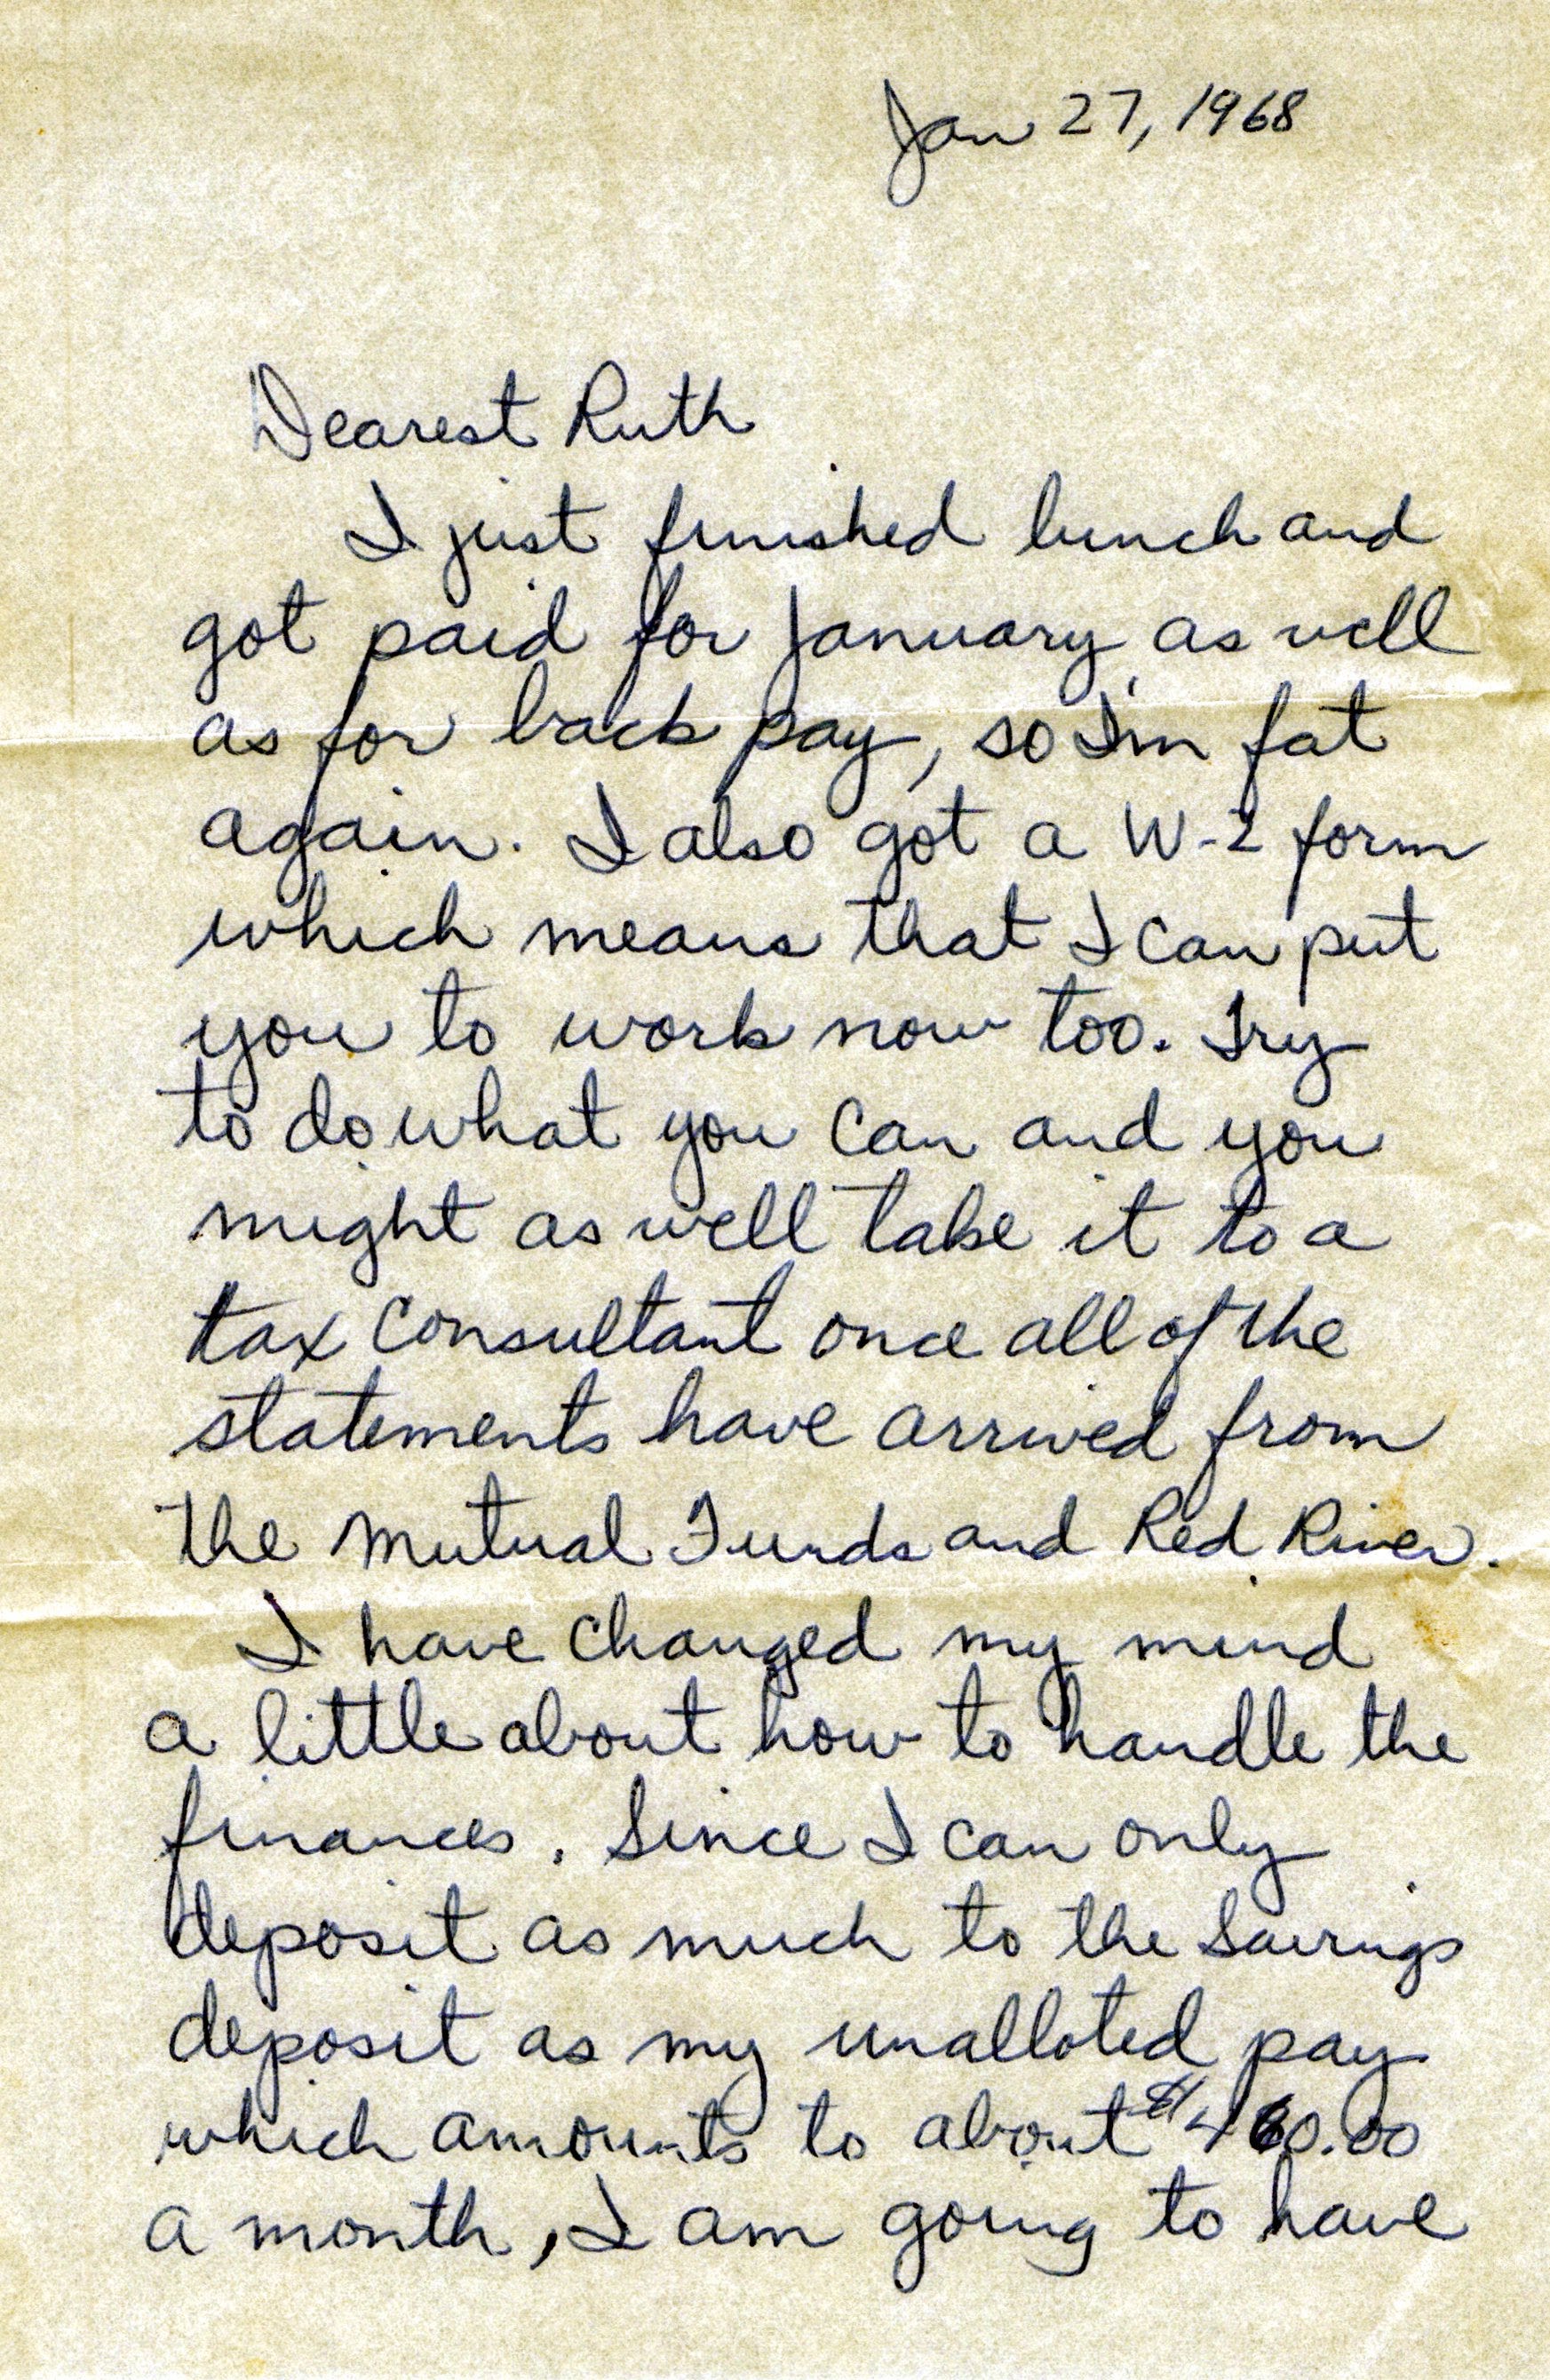 Jan 27, 1968
Dearest Ruth
I just finished lunch and
got paid for January as well
as for back pay, so I'm fat
again. I also got a W-2 form
which means that I can put
you to work now too. Try
to do what you can and you
might as well take it to a
tax consultant once all of the
statements have arrived from
the Mutual Funds and Red River.
I have changed my mind
a little about how to handle the
finances. Since I can only
deposit as much to the Savings
deposit as my unalloted pay
which amounts to about $460.00
a month, I am going to have